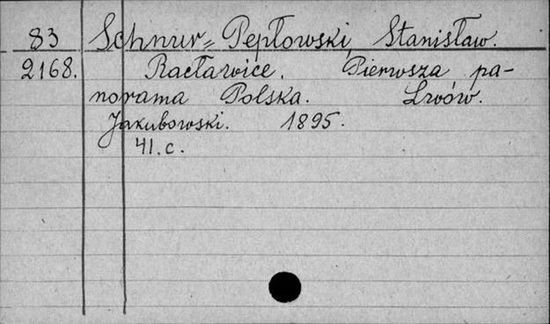 83 Schnur=Pepłowski, Stanisław.
2168. Racławice. Pierwsza pa-
norama Polska. Lwów.
Jakubowski. 1895.
41. c.